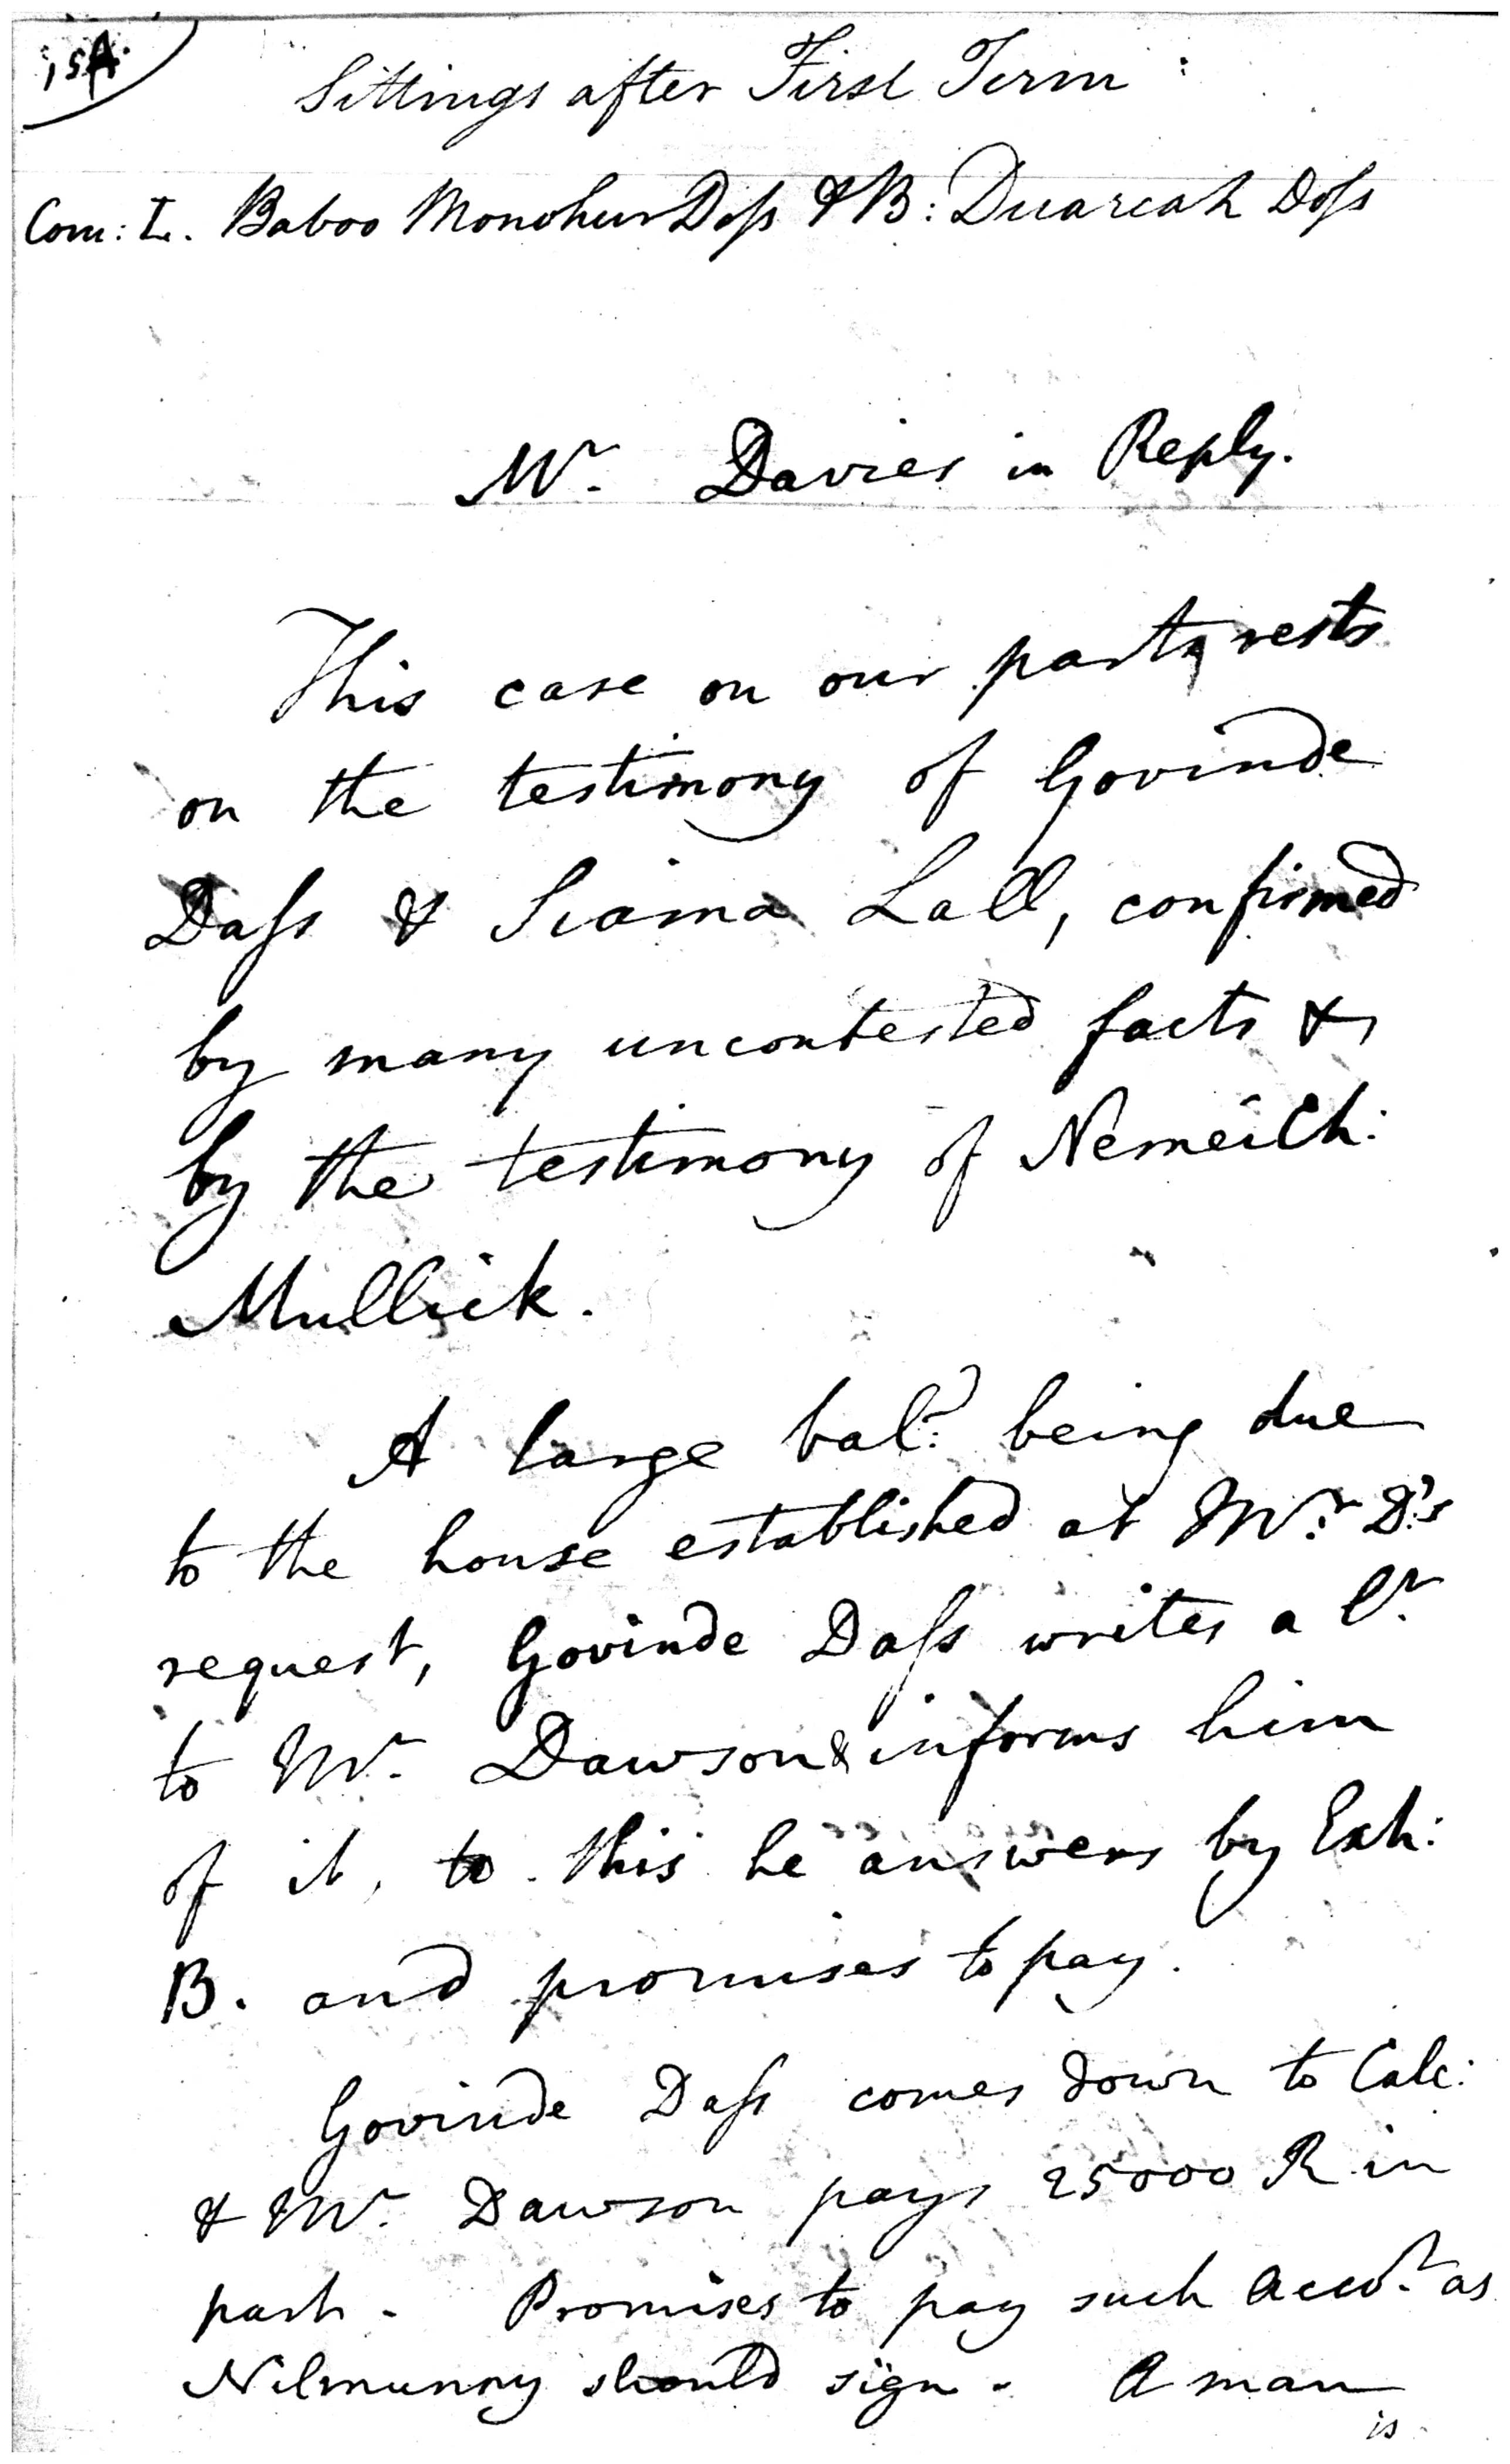 Sittings after First Term :
Com: L. Baboo Monohur Doſs & B: Duarcah Doſs
Mr. Davies in Reply.
This case on our part, rests
on the testimony of Govinde
Daſs & Siama Lall, confirmed
by many uncontested facts &
by the testimony of Nemeicht:
Mullick.
A large bal: being due
to the house established at Mr. D's
request, Govinde Daſs writes a lr.
to Mr. Dawson & informs him
of it, to this he answers by Exh:
B. and promises to pay.
Govinde Daſs comes down to Calc:
& Mr. Dawson pays 25000 R in
part. Promises to pay such acct. as
Nilmunny should sign. A man
is